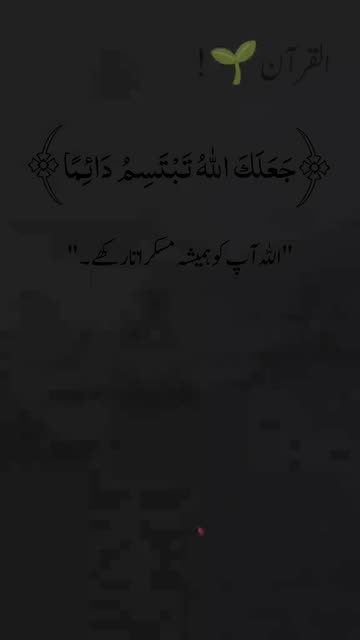 القرآن 🌱 !
﴿جَعَلَكَ اللهُ تَبْتَسِمُ دَائِمًا﴾
"اللہ آپ کو ہمیشہ مسکراتا رکھے۔"